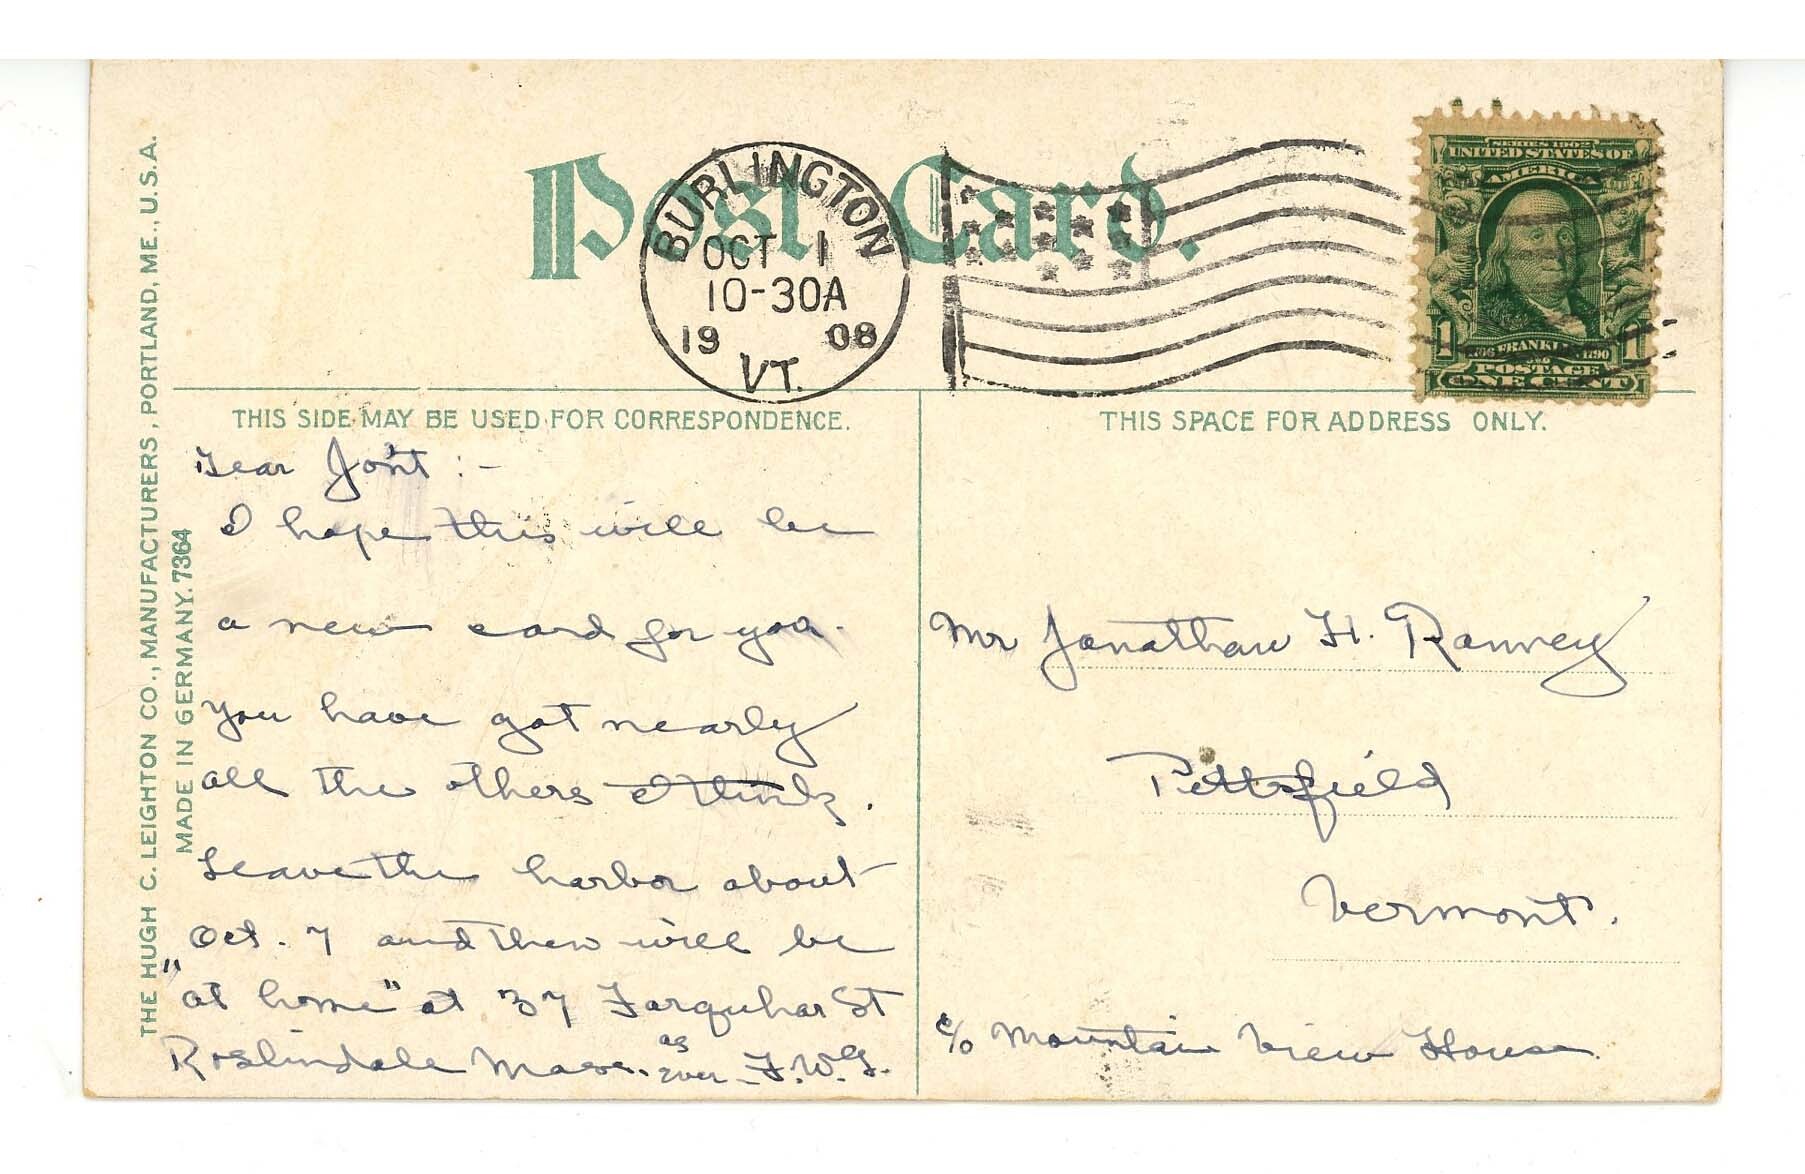 Post Card.
BURLINGTON
OCT 1
10-30A
19 08
VT.
SERIES 1902
UNITED STATES OF
AMERICA
1 1
1706 FRANKLIN 1790
POSTAGE
ONE CENT
THE HUGH C. LEIGHTON CO., MANUFACTURERS, PORTLAND, ME., U.S.A.
MADE IN GERMANY. 7364
THIS SIDE MAY BE USED FOR CORRESPONDENCE.
Dear Jon't :-
I hope this will be
a new card for you.
You have got nearly
all the others I think.
Leave the harbor about
Oct. 7 and then will be
"at home" at 37 Farquhar St
Roslindale Mass. as ever - F.W.G.
THIS SPACE FOR ADDRESS ONLY.
Mr Jonathan H. Ranney
Pittsfield
Vermont.
c/o Mountain View House.